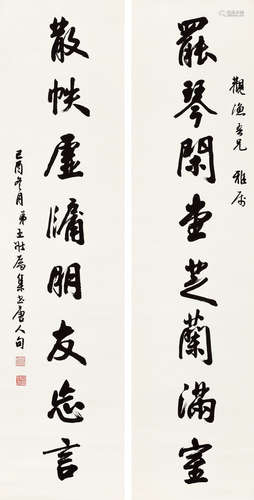 觀漁吾兄 雅屬
罷琴閑堂芝蘭滿室
散帙虛牖朋友忘言
己酉冬月弟王壯為集書唐人句